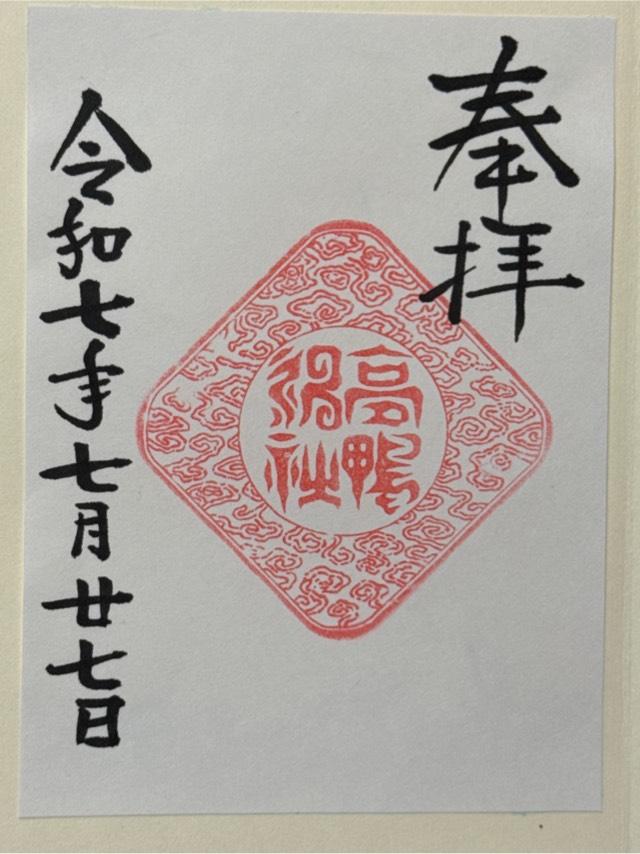 奉拝
高鴨
神社
令和七年七月廿七日